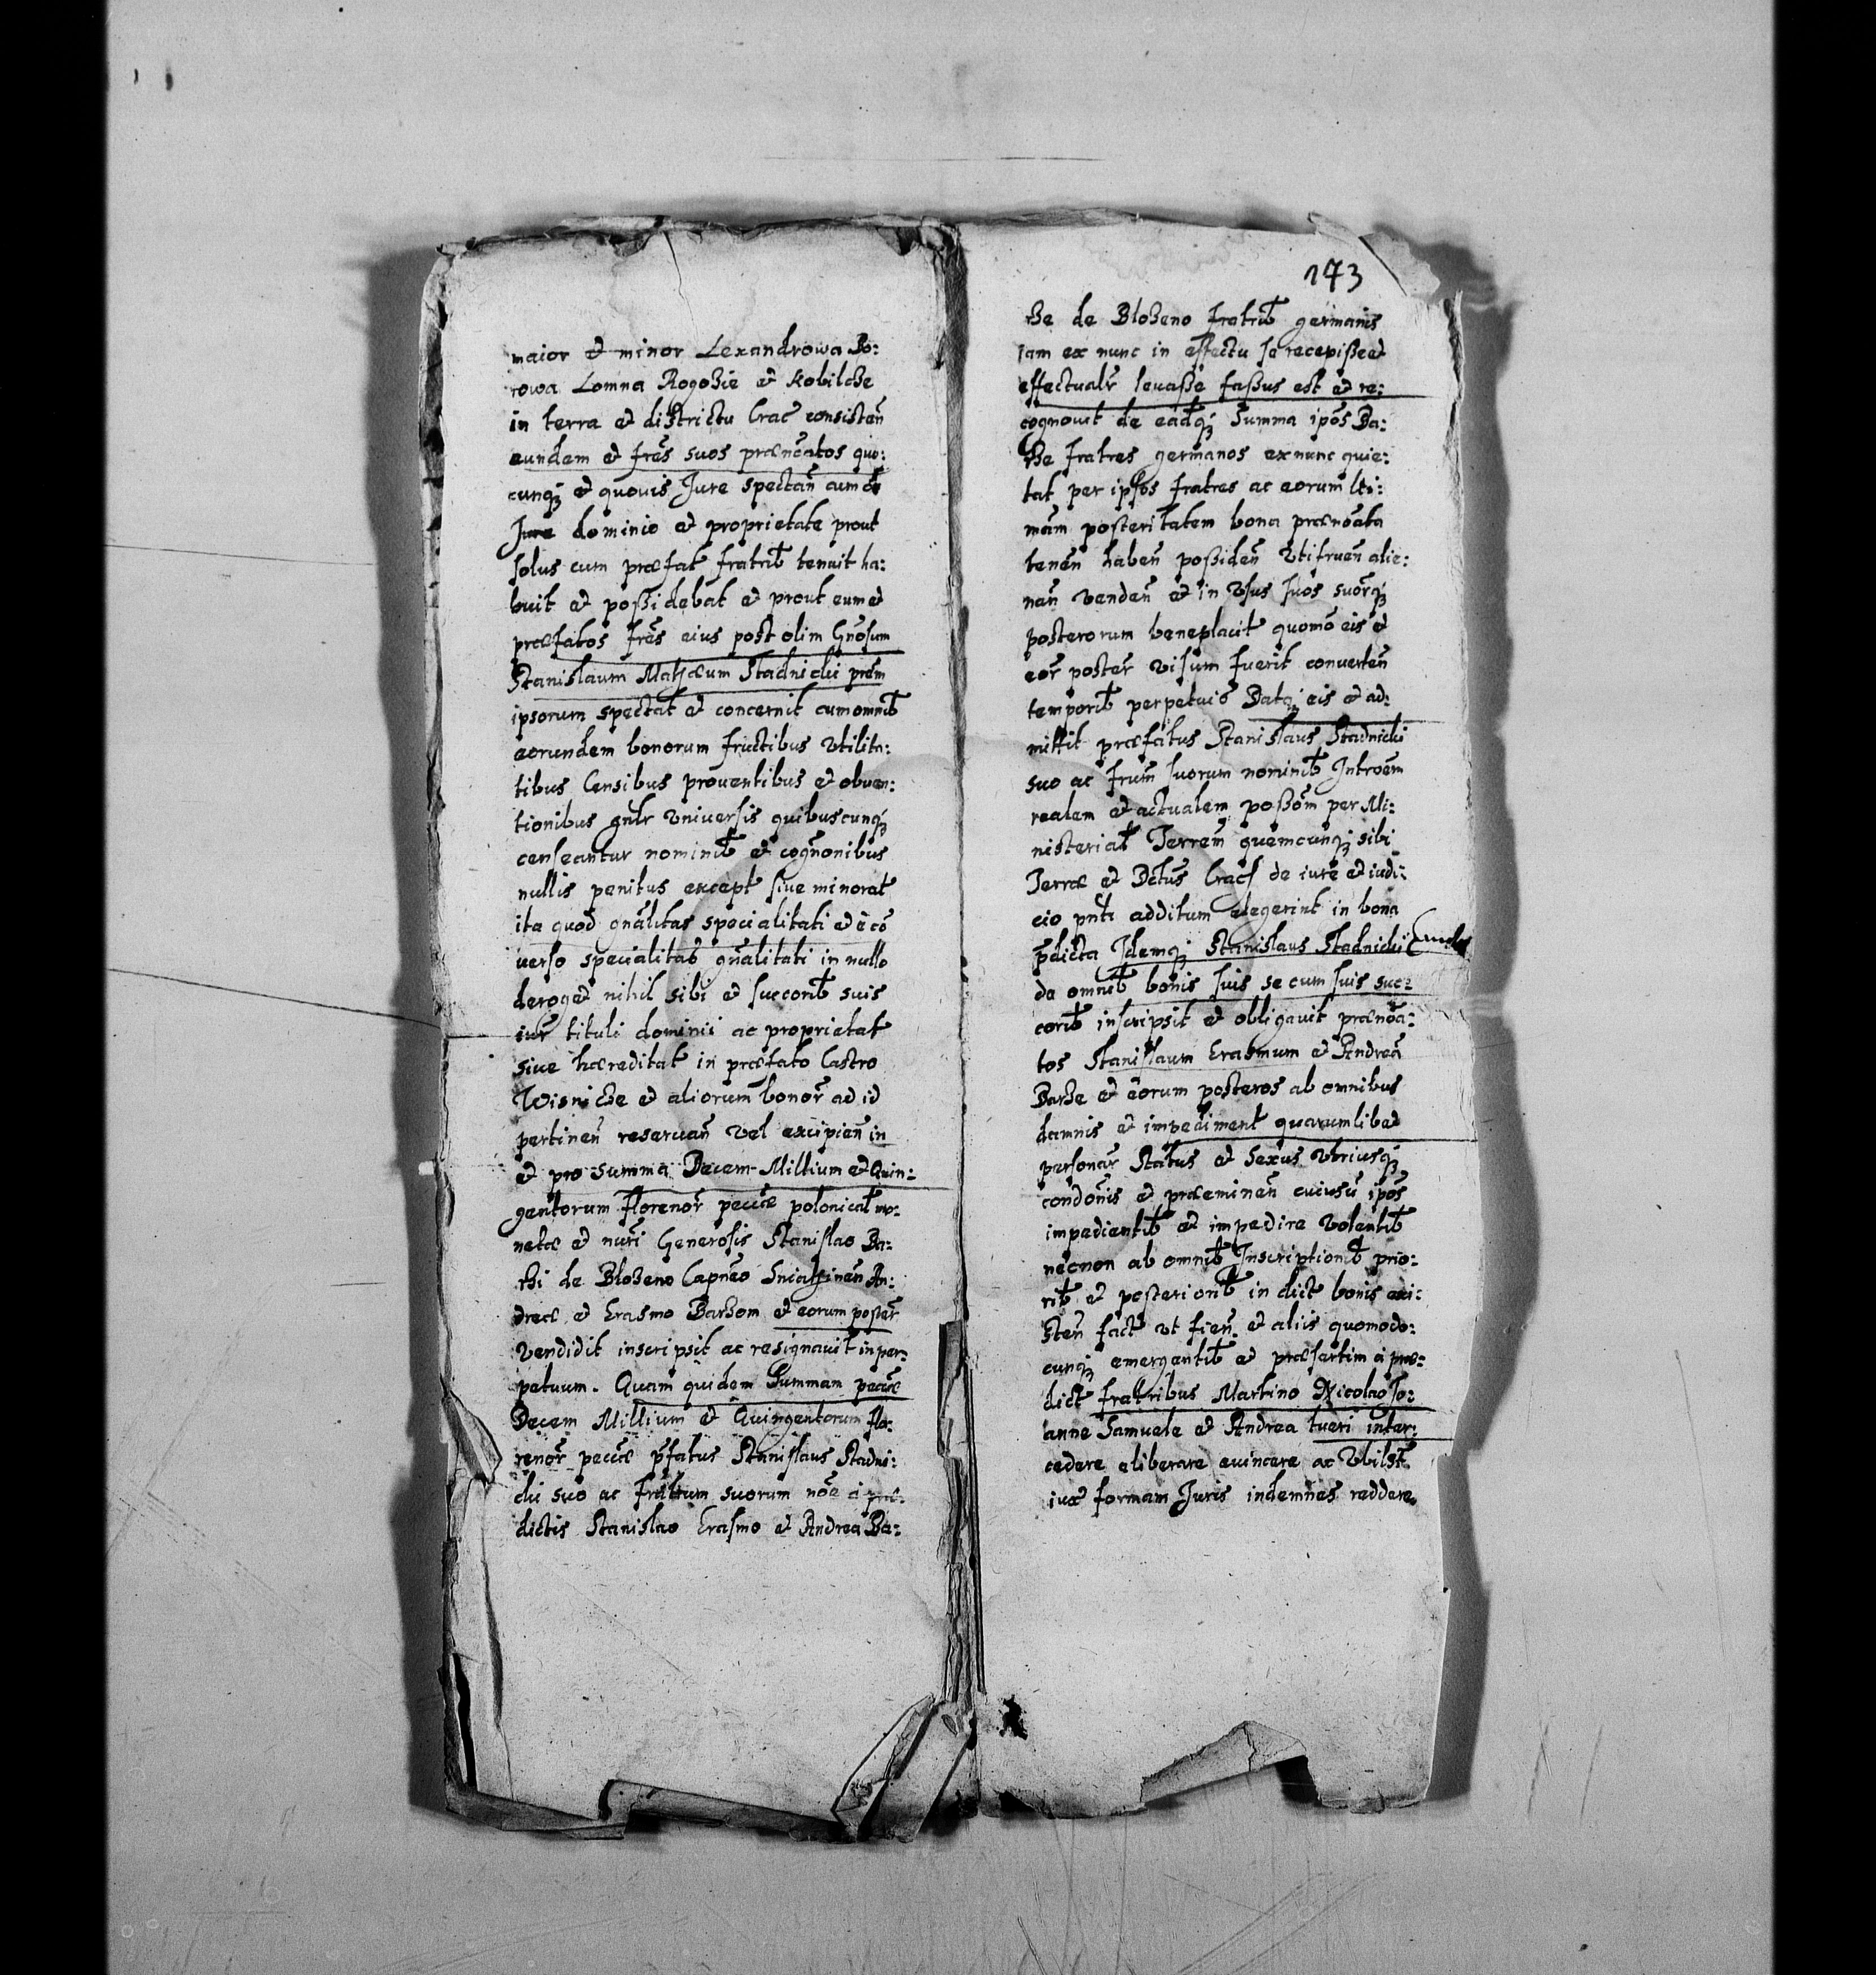 maior et minor Lexandrowa Bo:
rowa Lomna Rogozie et Kobilcze
in terra et districtu Crac consisteñ
eundem et frēs suos prænōatos quo:
cunqȝ et quovis Jure spectañ cum
Jure dominio et proprietate prout
solus cum præfat fratrib tenuit ha:
buit et poßidebat et prout eum et
præfatos frēs eius post olim Gnōsum
Stanislaum Mathæum Stadnicki prēm
ipsorum spectat et concernit cum omnib
eorundem bonorum fructibus Vtilita:
tibus Censibus prouentibus et obuen:
tionibus gnlr Vniuersis quibuscunqȝ
censeantur nominib et cognōnibus
nullis penitus except siue minorat
ita quod gnālitas specialitati et e cō
uerso specialitas gnālitati in nullo
deroget nihil sibi et succorib suis
iur tituli dominii ac proprietat
siue hæreditat in præfato Castro
Wisnicze et aliorum bonor̄ ad id
pertineñ reseruañ vel excipieñ in
et pro summa Decem Millium et Quin:
gentorum florenor̄ pecūæ polonical mo:
netæ et nūri Generosis Stanislao Ba:
rzi de Blozeno Capnēo Sniatineñ An:
dreæ et Erasmo Barzom et eorum poster̄
vendidit inscripsit ac resignauit in per:
petuum. Quam quidem Summam pecūæ
Decem Millium et Quingentorum flo:
renor̄ pecūæ p̄fatus Stanislaus Stadni:
cki suo ac fratrum suorum nōe a præ:
dictis Stanislao Erasmo et Andrea Ba:
173
rze de Blozeno fratrib germanis
iam ex nunc in effectu se recepißeet
effectualr̄ leuaße faßus est et re:
cognouit de eadqȝ Summa ipōs Ba:
rze fratres germanos ex nunc quie:
tat per ipsos fratres ac eorum lti:
mām posteritatem bona prænōata
teneñ habeñ poßideñ Vtifrueñ alie:
nañ vendeñ et in Vsus suos suorqȝ
posterorum beneplacit quomō eis et
eor̄ poster̄ visum fuerit conuerteñ
temporib perpetuis Datqȝ eis et ad:
mittit præfatus Stanislaus Stadnicki
suo ac frum̄ suorum nominib Introēm
realem et actualem poßōm per Mi:
nisterial Terrēm quemcunqȝ sibi
Terræ et Dctus Crac de iure et iudi:
cio pnti additum elegerint in bona
p̄dicta Idemqȝ Stanislaus Stadnicki
de omnib bonis suis se cum suis suc:
corib inscripsit et obligauit prænōa:
tos Stanislaum Erasmum et Andreā
Barze et eorum posteros ab omnibus
damnis et impediment quarumlibet
personar̄ Status et Sexus Vtriusqȝ
condōnis et præemineñ cuiusū ipōs
impedientib et impedire Volentib
necnon ab omnib Inscriptionib prio:
rib et posteriorib in dict bonis exi:
steñ fact vt fieñ et aliis quomodo:
cunqȝ emergentib et præsertim a præ:
dict fratribus Martino Nicolao Jo:
anne Samuele et Andrea tueri inter:
cedere eliberare euincere ac
iux formam Juris indemnes reddere